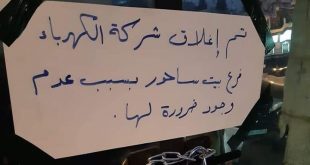 تم إغلاق شركة الكهرباء
فرع بيت ساحور بسبب عدم
وجود ضرورة لها.